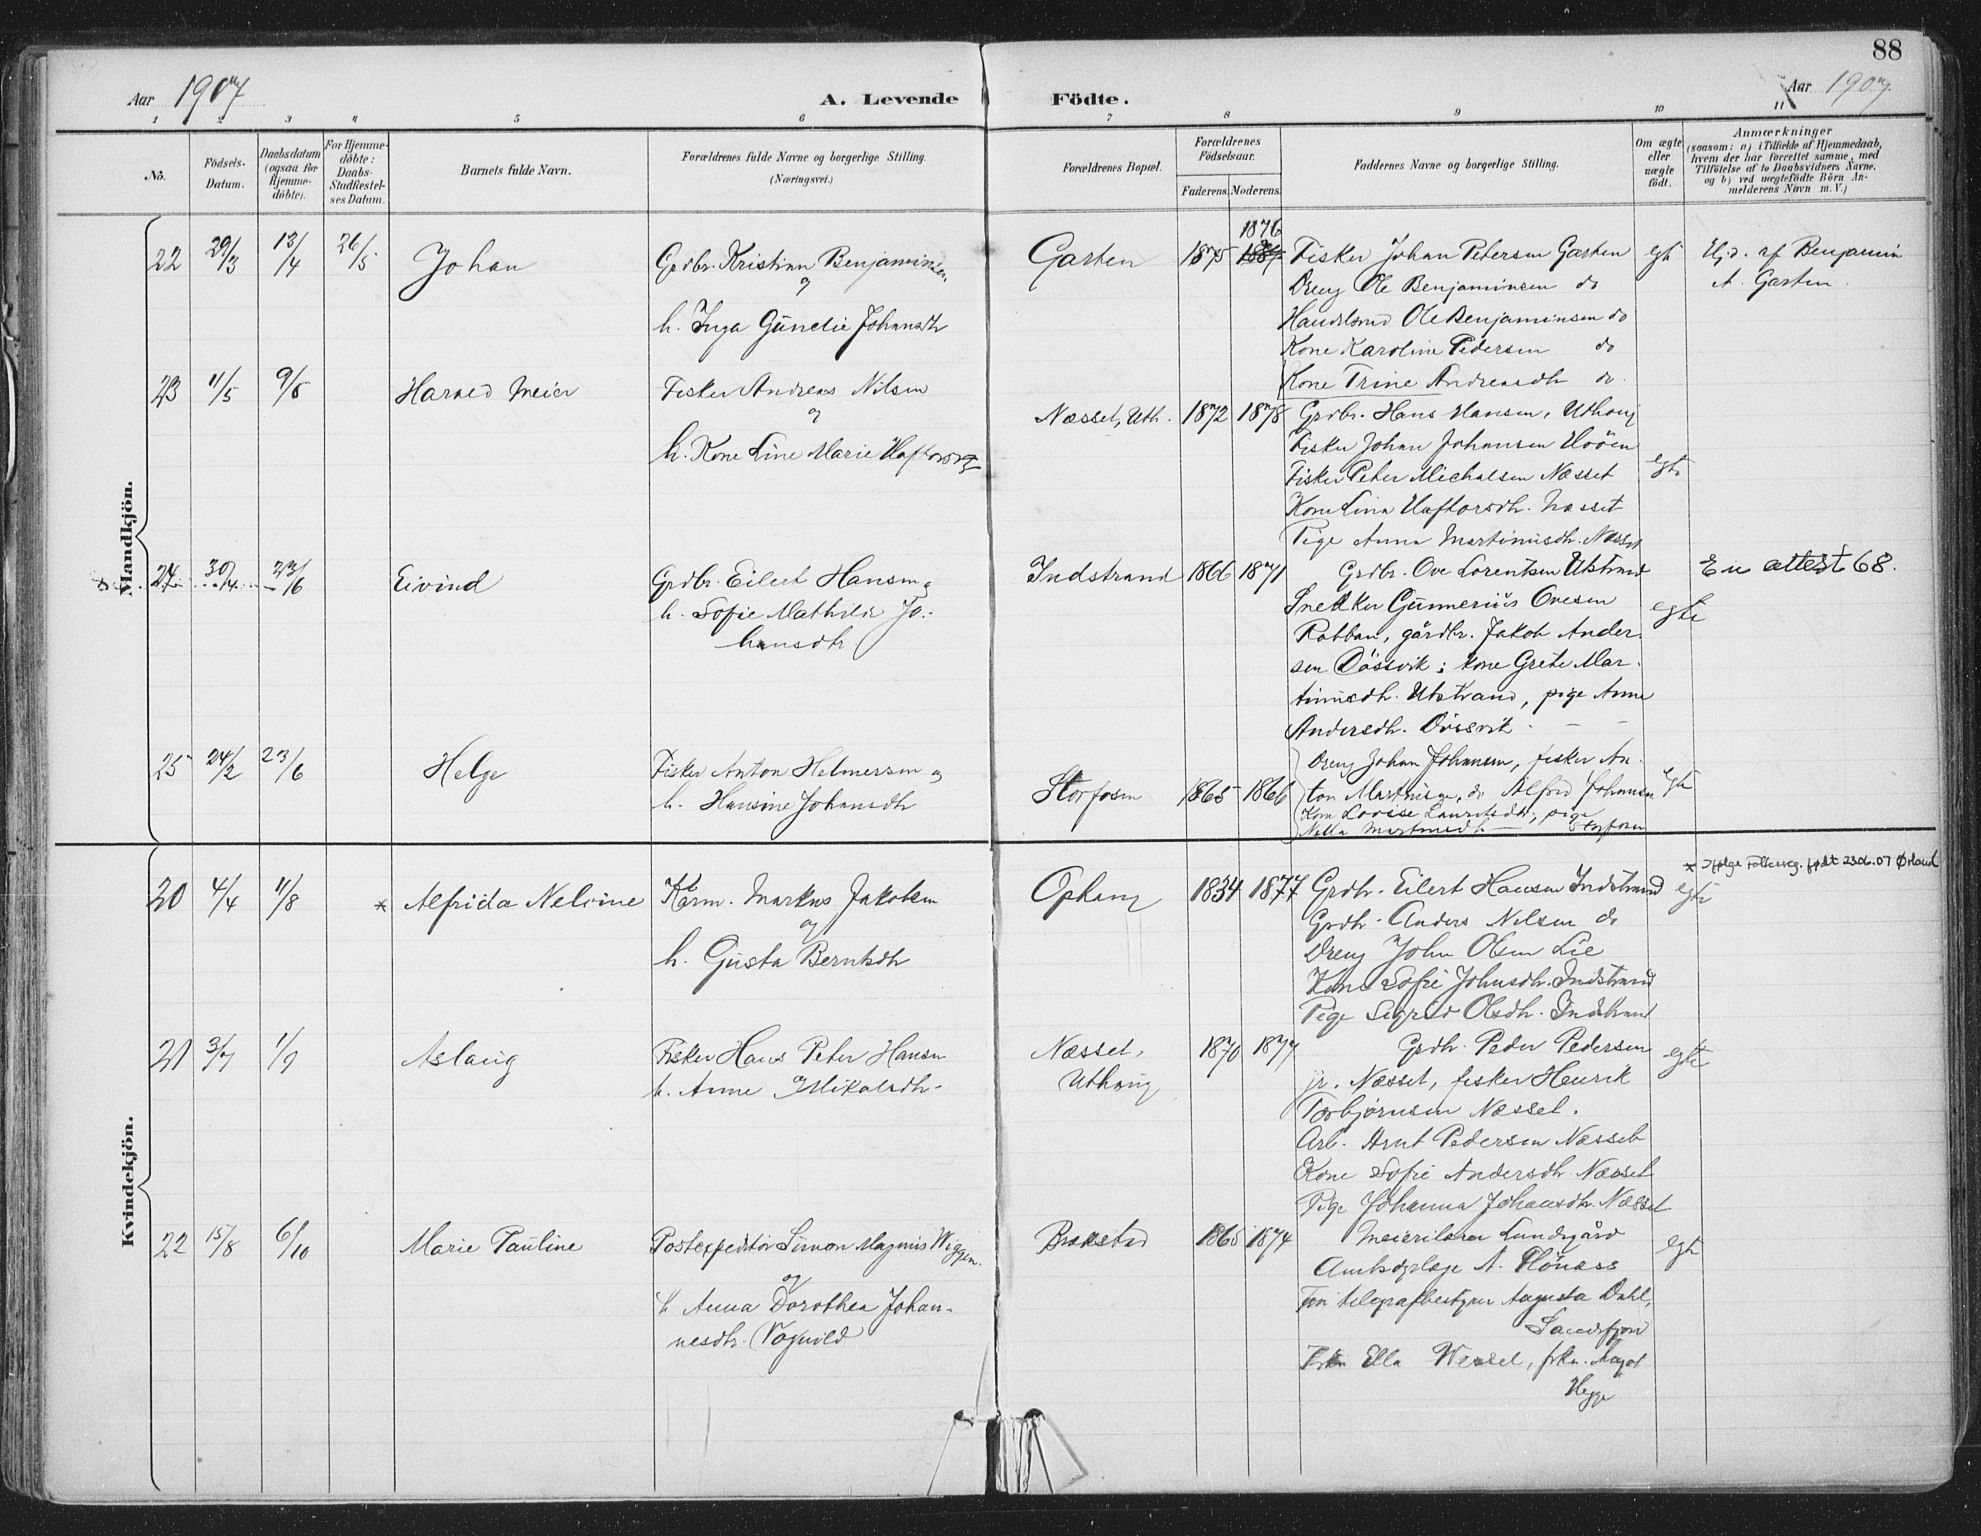 88
Aar 1907
A. Levende Födte.
Aar 1907.
1 2 3 4 5 6 7 8 9 10 11
No.
Födsels-Datum.
Daabsdatum (ogsaa for Hjemmedöbte).
For Hjemmedöbte: Daabs-Stadfæstelses Datum.
Barnets fulde Navn.
Forældrenes fulde Navne og borgerlige Stilling. (Næringsvei.)
Forældrenes Bopæl.
Forældrenes Födselsaar.
Faderens. Moderens.
Faddernes Navne og borgerlige Stilling.
Om ægte eller uægte födt.
Anmærkninger
(saasom: a) i Tilfælde af Hjemmedaab,
hvem der har forrettet samme, med
Tilföielse af to Daabsvidners Navne,
og b) ved uægtefödte Börn An-
melderens Navn m. V.)
Mandkjön.
22 29/3 13/4 26/5 Johan
Grdbr. Kristian Benjaminsen
og
h. Inga Gunelie Johansdtr
Garten 1875 1876
Fisker Johan Petersen Garten
Dreng Ole Benjaminsen do
Handelsmd Ole Benjaminsen do
Kone Karoline Pedersen do
Kone Trine Andreasdtr do
egt
Hj.d. af Benjamin
A. Garten.
23 11/5 9/6 Harald Meier
Fisker Andreas Nilsen
og
h. Kone Line Marie Haftorsdtr
Næsset, Uth. 1872 1878
Grdbr. Hans Hansen, Uthaug
Fisker Johan Johansen Hoöen
Fisker Peter Michalsen Næsset
Kone Lina Haftorsdtr. Næsset
Pige Anna Martinusdtr. Næsset
egte
24 30/4 23/6 Eivind
Grdbr. Eilert Hansen og
h. Sofie Mathilde Jo-
hansdtr
Indstrand 1866 1871
Grdbr. Ove Lorentsen Utstrand
Snekker Gunnerius Ovesen
Rabban, gårdbr. Jakob Ander-
sen Dössvik; kone Grete Mar-
tinusdtr. Utstrand, pige Anne
Andersdtr. Dössvik
egte
En attest 68.
25 24/2 23/6 Helge
Fisker Anton Helmersen og
h. Hansine Johansdtr
Storfosen 1865 1866
Dreng Johan Johansen, fisker An-
ton Martinsen, do Alfred Johansen
Kone Lovise Lauritsdtr; pige
egte
Kvindekjön.
* Ifølge Folkereg. født 23.6.07 Ørland
20 4/4 11/8 * Alfrida Nelvine
Kårm. Markus Jakobsen
og
h. Gusta Berntsdtr
Ophaug 1834 1877
Grdbr. Eilert Hansen Indstrand
Grdbr. Anders Nilsen do
Dreng John Olsen Lie
Kone Sofie Johnsdtr. Indstrand
Pige Sigrid Olsdtr. Indstrand
egte
21 3/7 1/9 Aslaug
Fisker Hans Peter Hansen
h. Anne Mikalsdtr.
Næsset,
Uthaug
1870 1877
Grdbr. Peder Pedersen
jr. Næsset, fisker Henrik
Torbjørnsen Næsset.
Arb. Arnt Pedersen Næsset
Kone Sofie Andersdtr. Næsset
Pige Johanna Johansdtr. Næsset
egte
22 15/8 6/10 Marie Pauline
Postexpeditör Simon Magnus Wiggen.
og
h. Anna Dorothea Johan-
nesdtr. (Vognild)
Brekstad 1865 1874
Meierilærer Lundsgård
Amtsdyrlæge A. Hönæss
Frøn telegrafbestyrer Augusta Dahl,
Frkn Ella Wessel, frkn. Magot
Hegge
egte